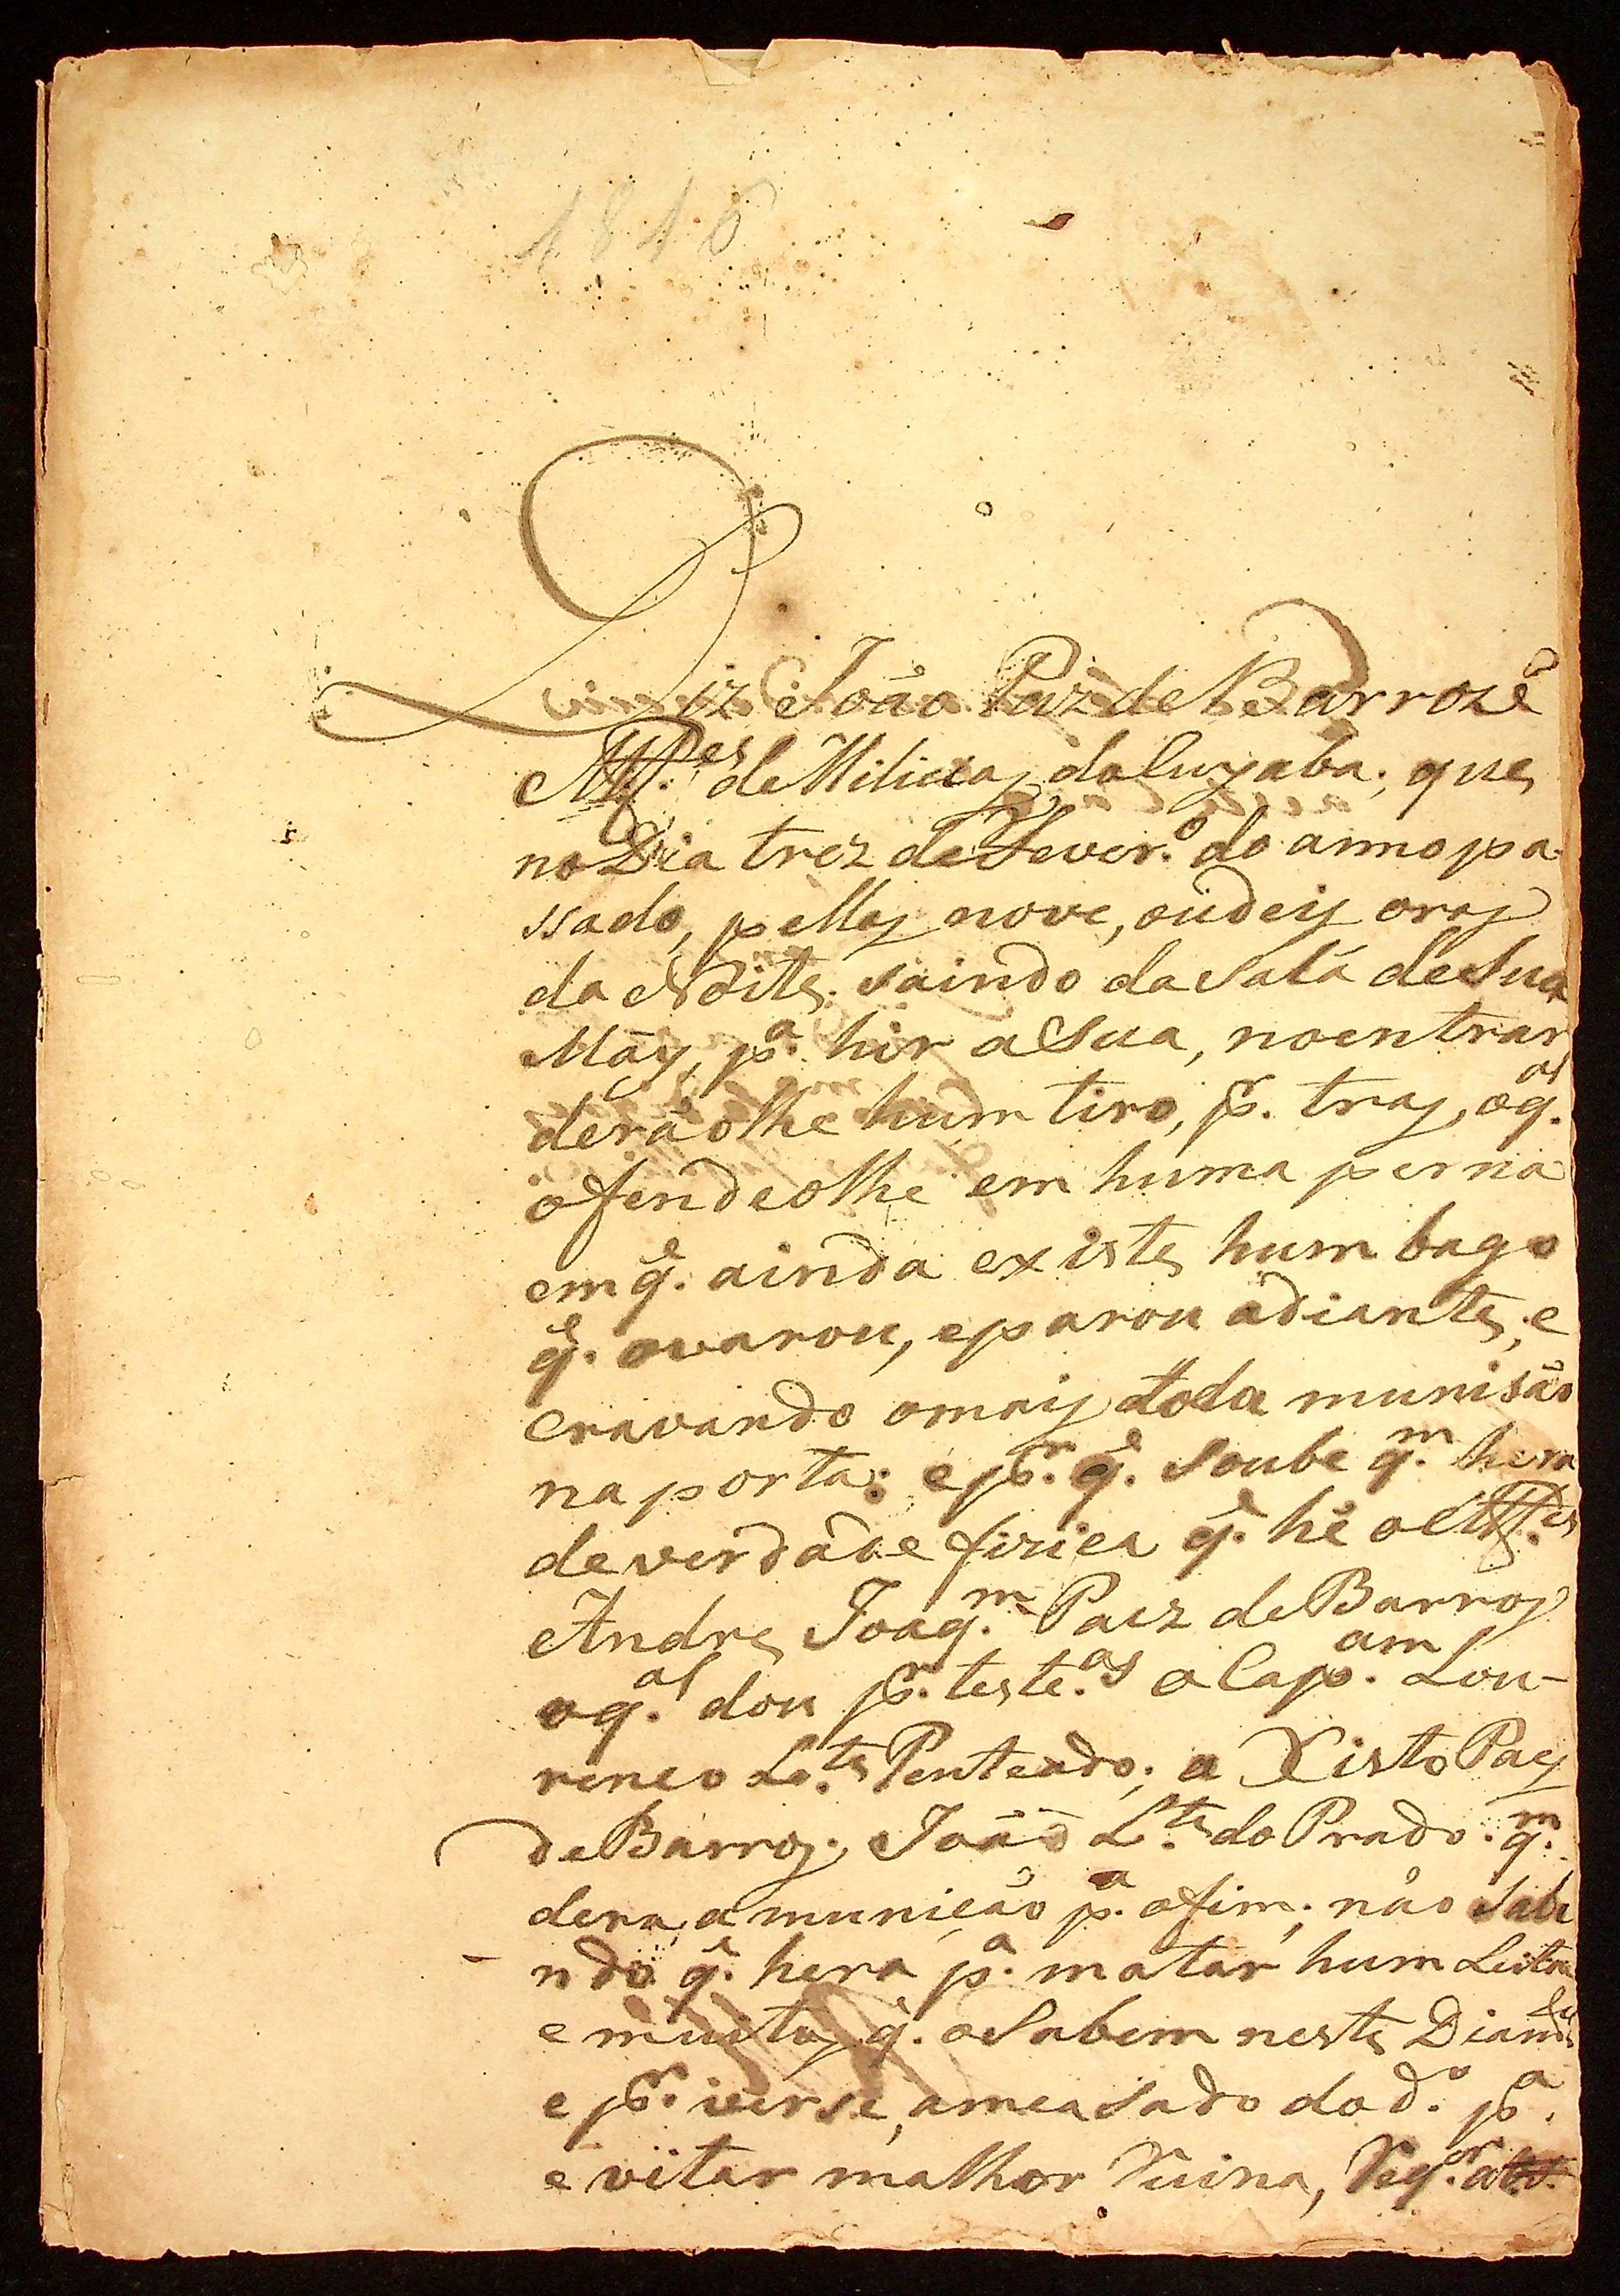 1816
Diz João Paiz de Barros ẽ
Alf.es de Milicias do Cuyaba; que
no Dia trez de Fever.o do anno pa
ssado, pellas nove, ou deis oras
da Noite, saindo da Sala de Sua
May, p.a hir a Sua, no entrar
derãolhe hum tiro, p.r tras, oq.al
ofendeolhe em huma perna
em q.e ainda existe hum bago
q.e varou, e parou adiante, e
cravando omais toda munisão
na porta: e p.r q.e soube q.m hera
de verdade fizica q.e hé o Alf.es
Andre Joaq.m Paes de Barros
oq.al dou p.r teste.as o Cap.am Lou-
renco Le.te Penteado; a Xisto Paes
de Barros, João L.te do Prado. q.m
dera, a munição p.a ofim; não Sabe
ndo q.e hera p.a matar hum
e muitos q.e o Sabem neste
e p.r verse, ameasado do d.o p.a
evitar malhor Ruina, Req.er